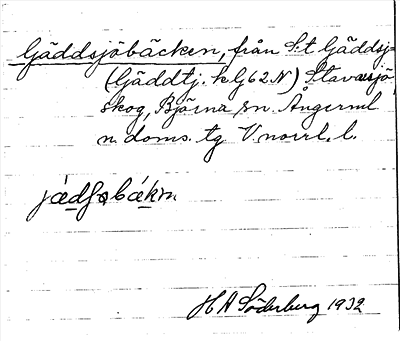 Gäddsjöbäcken, från S:t Gäddsj=
(Gäddtj. k G 62 N) Stavarsjö
skog, Björna sn. Ångerml
n. doms. tg V.norrl. l.
H A Söderberg 1932